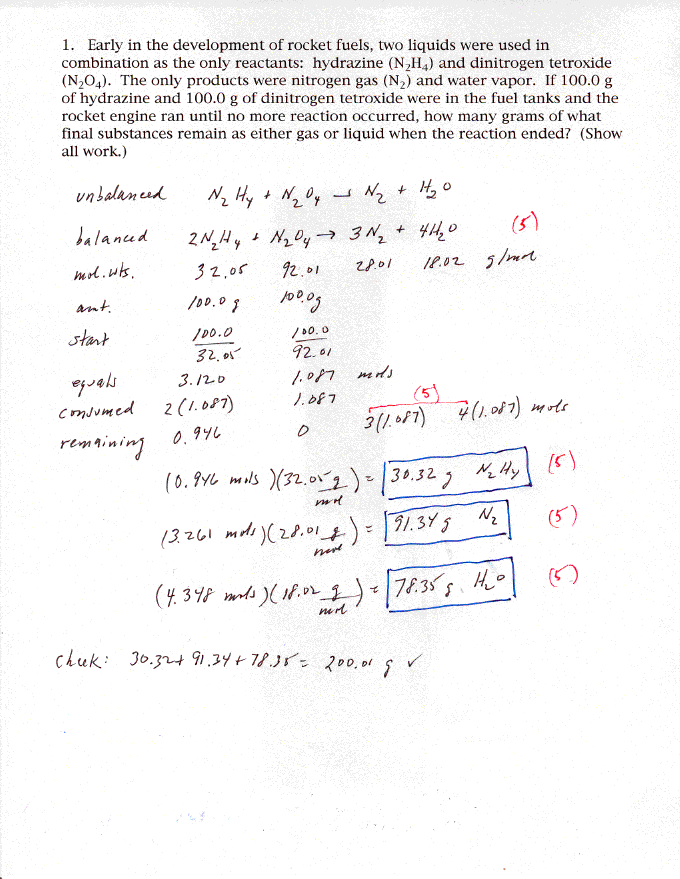 1. Early in the development of rocket fuels, two liquids were used in
combination as the only reactants: hydrazine (N₂H₄) and dinitrogen tetroxide
(N₂O₄). The only products were nitrogen gas (N₂) and water vapor. If 100.0 g
of hydrazine and 100.0 g of dinitrogen tetroxide were in the fuel tanks and the
rocket engine ran until no more reaction occurred, how many grams of what
final substances remain as either gas or liquid when the reaction ended? (Show
all work.)
unbalanced N₂H₄ + N₂O₄ → N₂ + H₂O
balanced 2N₂H₄ + N₂O₄ → 3N₂ + 4H₂O (5)
mol. wts. 32.05 92.01 28.01 18.02 g/mol
amt. 100.0 g 100.0g
start 100.0/32.05 100.0/92.01
equals 3.120 1.087 mols
consumed 2(1.087) 1.087 (5) 3(1.087) 4(1.087) mols
remaining 0.946 0
(0.946 mols)(32.05 g/mol) = 30.32 g N₂H₄ (5)
(3.261 mols)(28.01 g/mol) = 91.34 g N₂ (5)
(4.348 mols)(18.02 g/mol) = 78.35 g H₂O (5)
Check: 30.32 + 91.34 + 78.35 = 200.01 g ✓